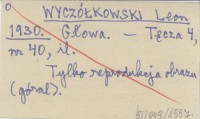 WYCZÓŁKOWSKI Leon
1930. Głowa. — Tęcza 4,
nr 40, il.
Tylko reprodukcja obrazu
(góral).